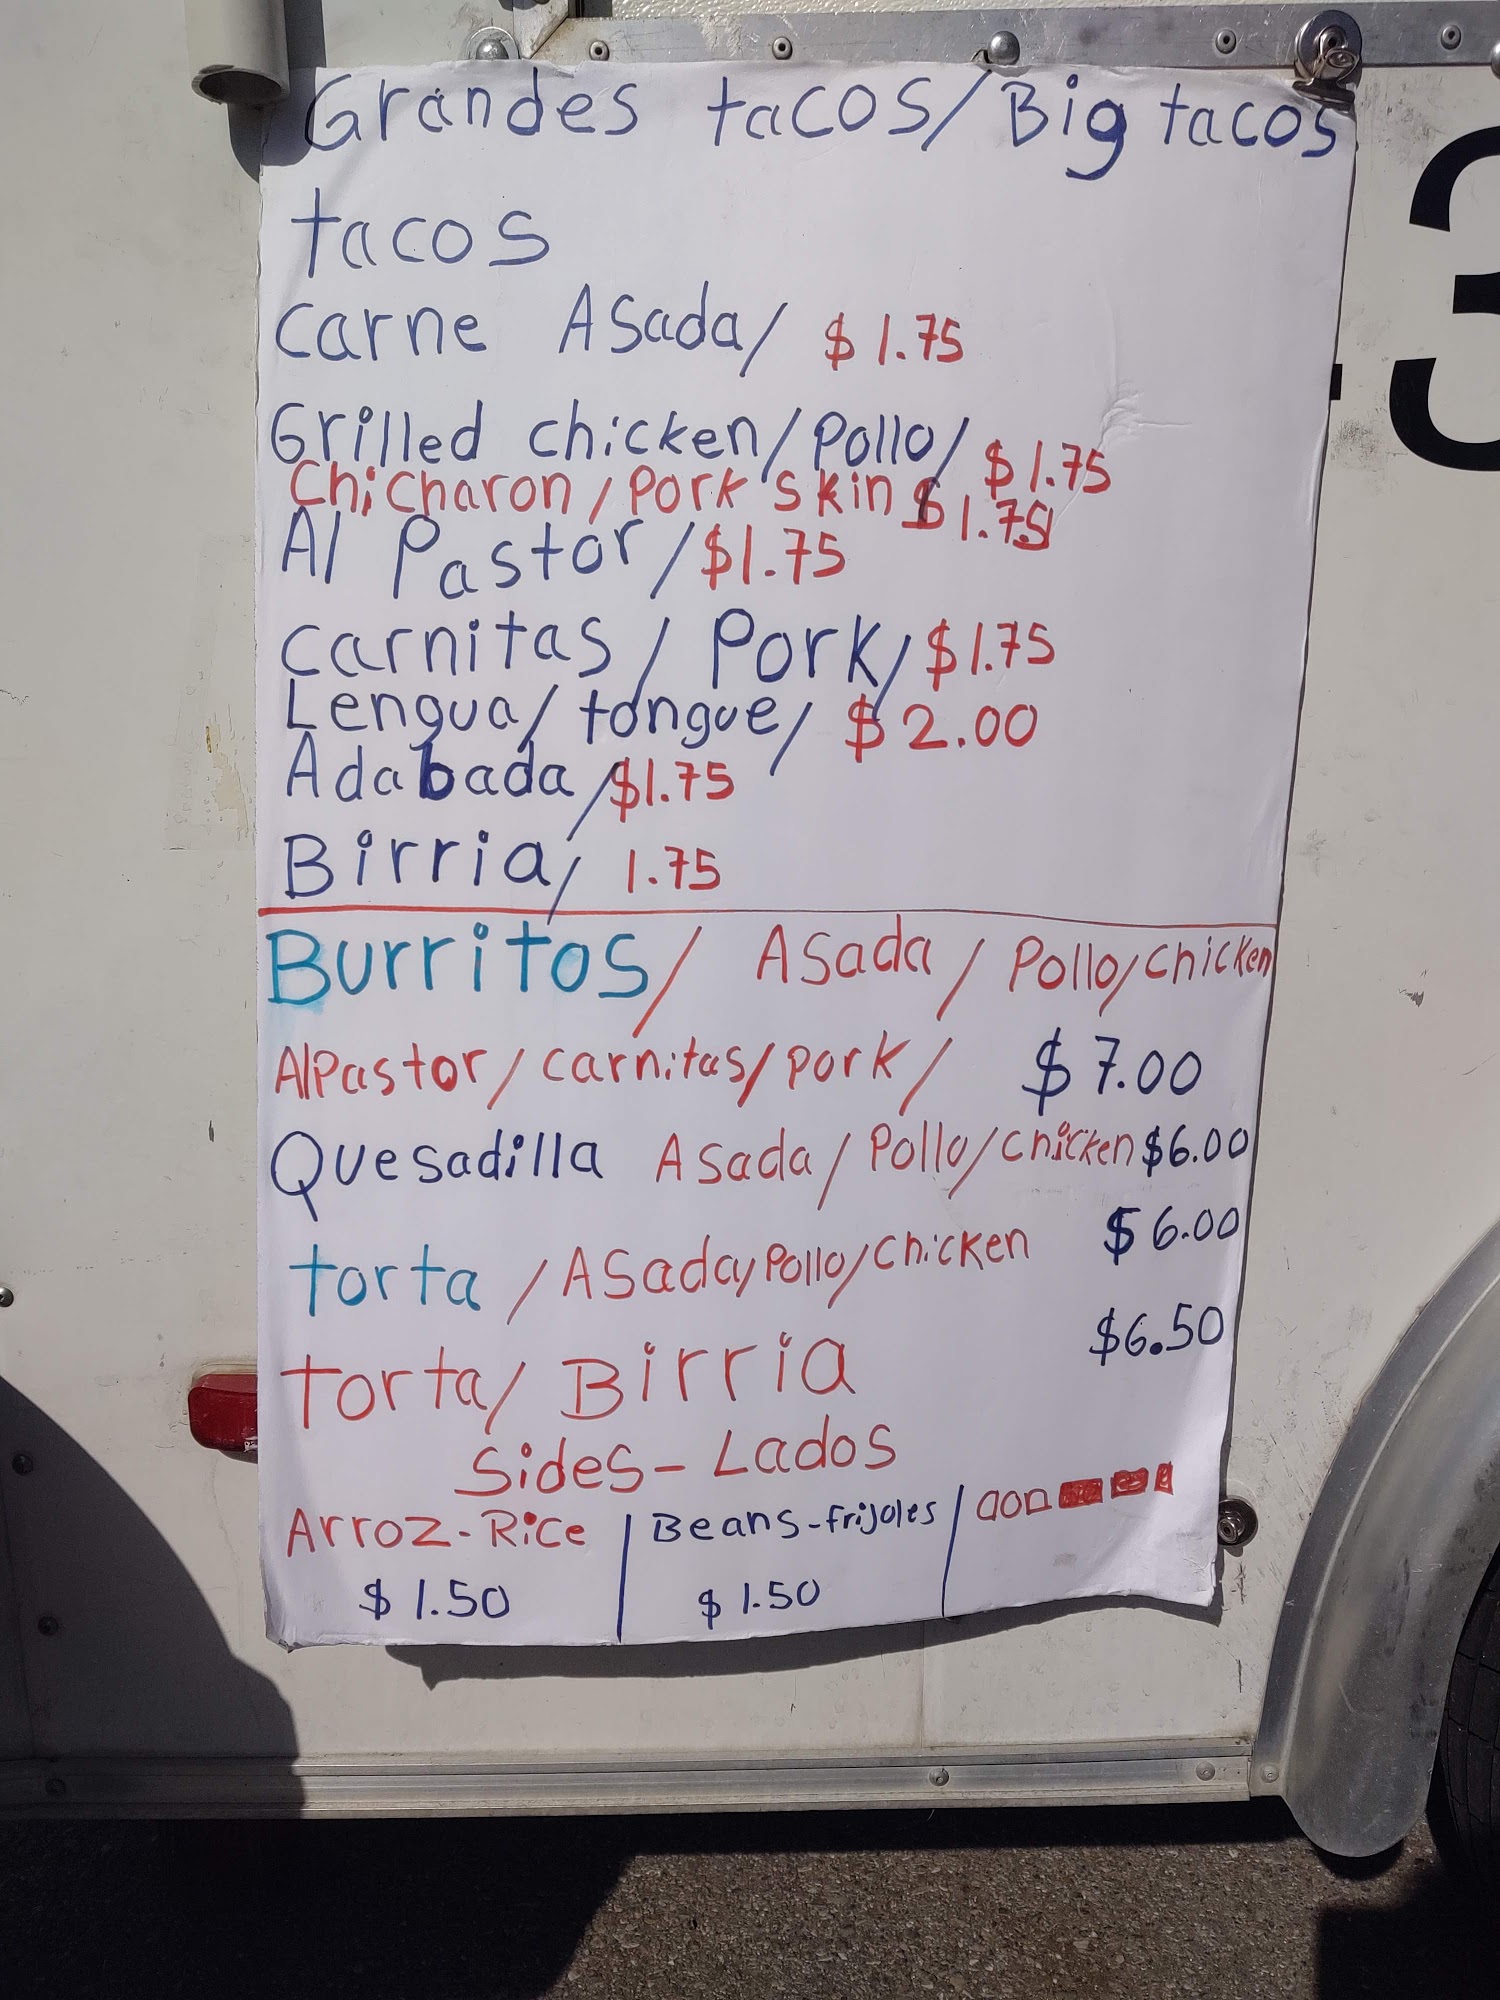 Grandes tacos/Big tacos
tacos
Carne Asada/ $1.75
Grilled chicken/Pollo/ $1.75
Chicharon/Pork skin $1.75
Al Pastor/$1.75
Carnitas/Pork/$1.75
Lengua/tongue/$2.00
Adabada/$1.75
Birria/ 1.75
Burritos/ Asada/Pollo/Chicken
AlPastor/Carnitas/Pork/ $7.00
Quesadilla Asada/Pollo/Chicken $6.00
torta/Asada/Pollo/Chicken $6.00
torta/Birria $6.50
Sides-Lados
Arroz-Rice | Beans-frijoles |
$1.50 | $1.50
3